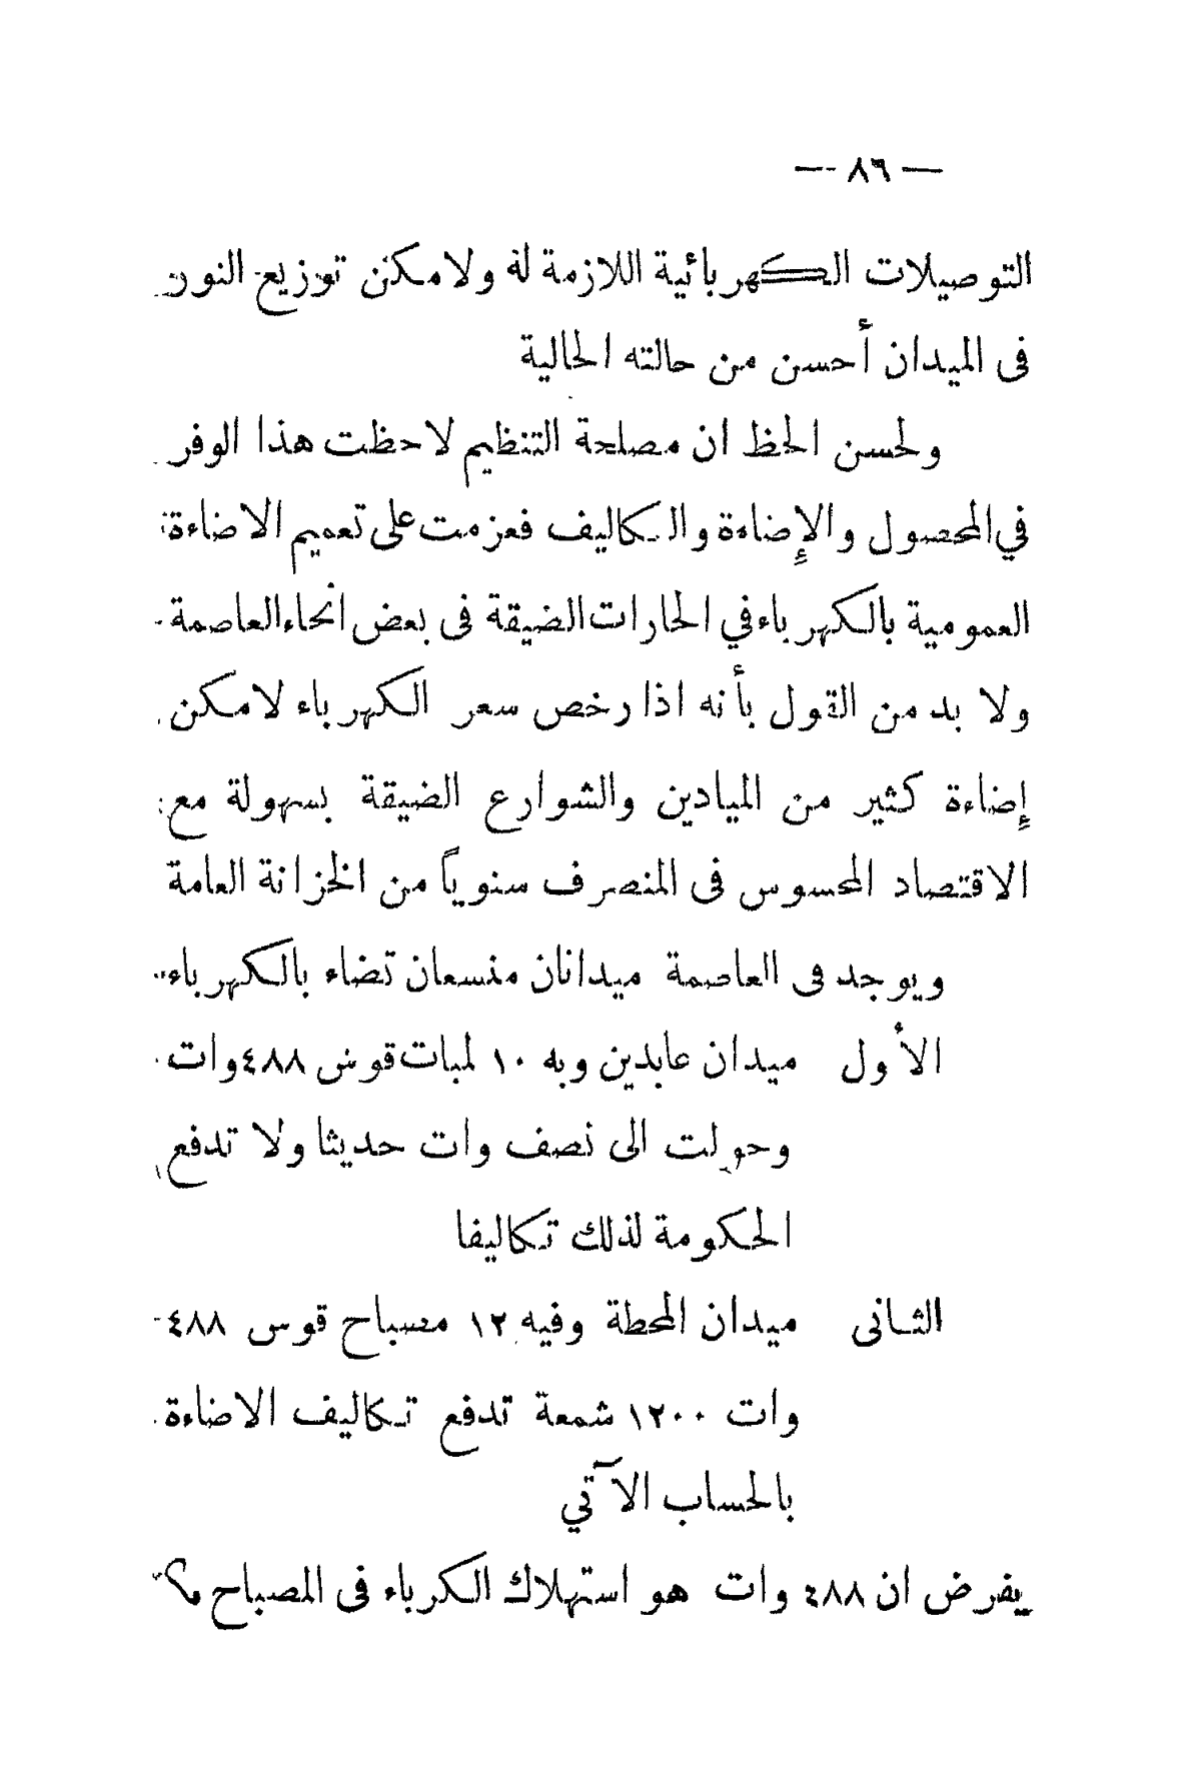 — ٨٦ —
التوصيلات الكهربائية اللازمة له ولامكن توزيع النور
فى الميدان أحسن من حالته الحالية
ولحسن الحظ ان مصلحة التنظيم لاحظت هذا الوفر
في المحصول والإضاءة والتكاليف فعزمت على تعميم الاضاءة
العمومية بالكهرباء في الحارات الضيقة فى بعض انحاء العاصمة
ولا بد من القول بأنه اذا رخص سعر الكهرباء لامكن
إضاءة كثير من الميادين والشوارع الضيقة بسهولة مع
الاقتصاد المحسوس فى المنصرف سنوياً من الخزانة العامة
ويوجد فى العاصمة ميدانان متسعان تضاء بالكهرباء
الأول ميدان عابدين وبه ١٠ لمبات قوس ٤٨٨ وات
وحولت الى نصف وات حديثا ولا تدفع
الحكومة لذلك تكاليفا
الثانى ميدان المحطة وفيه ١٢ مصباح قوس ٤٨٨
وات ١٢٠٠ شمعة تدفع تكاليف الاضاءة
بالحساب الآتي
يفرض ان ٤٨٨ وات هو استهلاك الكرباء فى المصباح